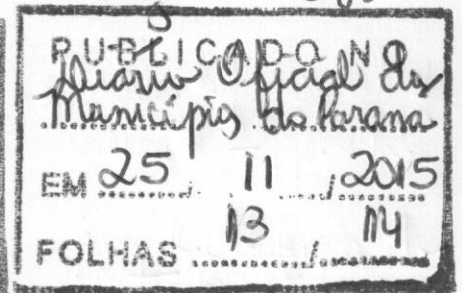 PUBLICADO NO
Diário Oficial dos
Municípios do Paraná
EM 25 / 11 / 2015
FOLHAS 113 / 114